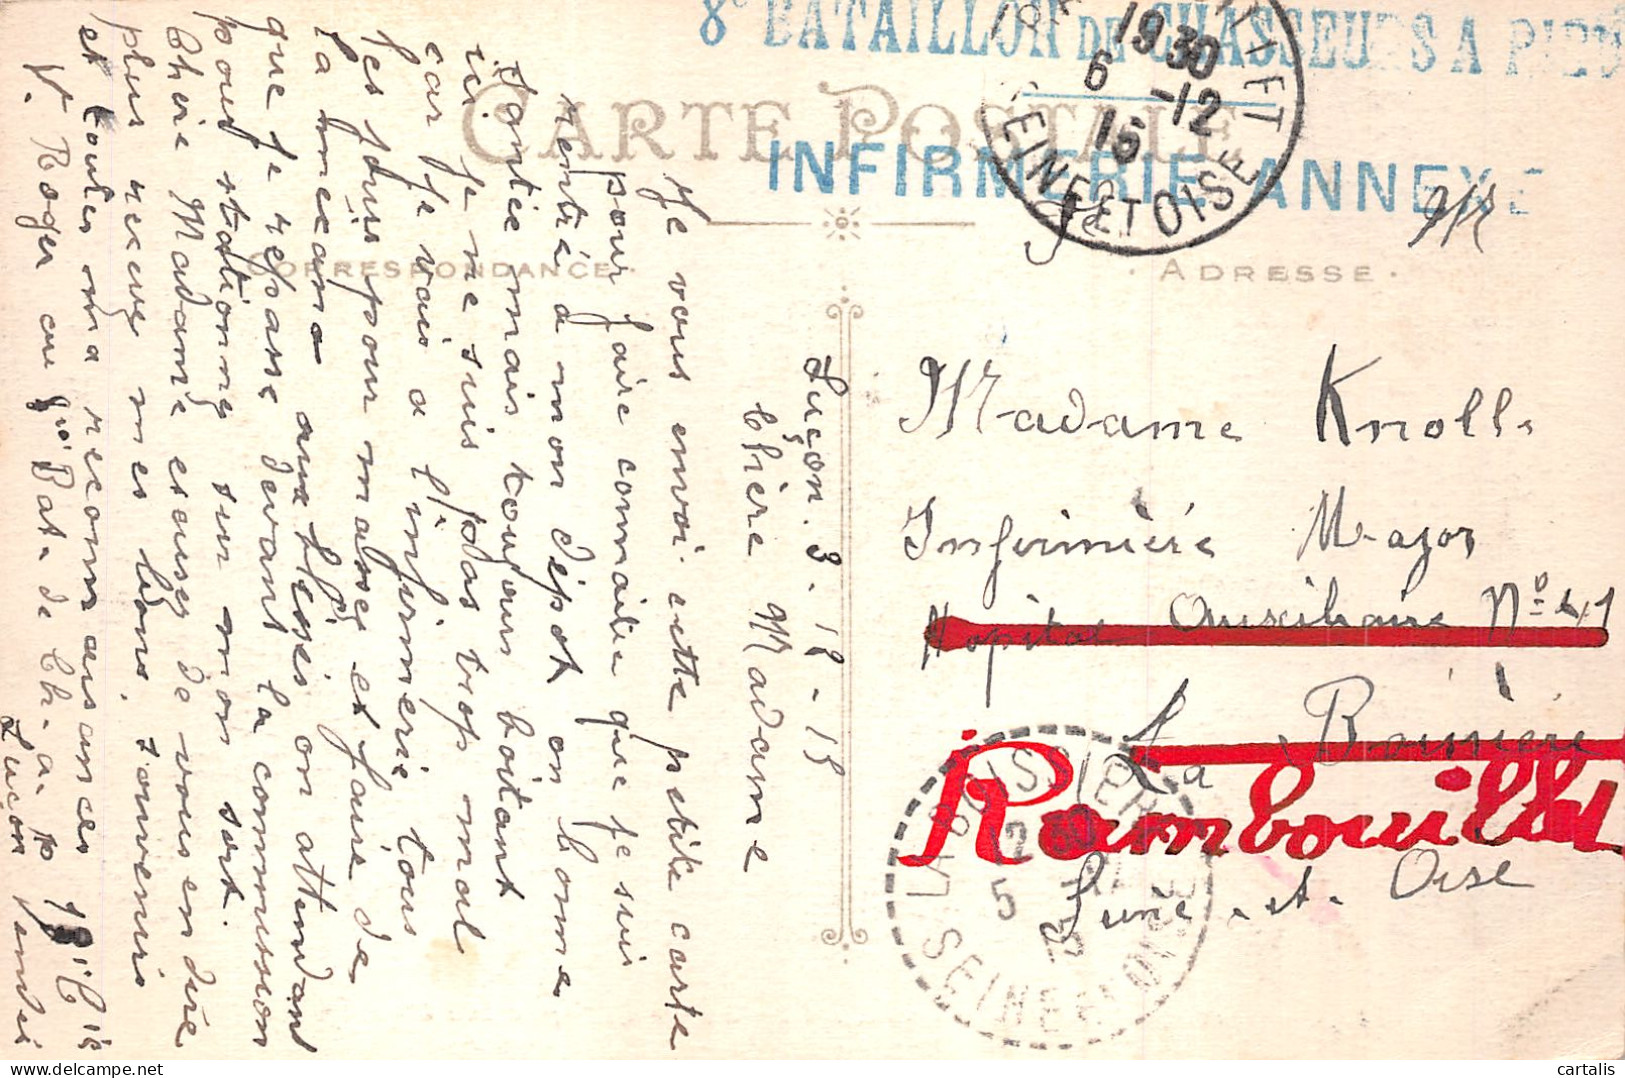 8e BATAILLON DE CHASSEURS A PIED
INFIRMERIE ANNEXE
CARTE POSTALE
CORRESPONDANCE
ADRESSE
19 30
6 -12
15
SEINE ET OISE
Luçon. 3-12-15
Chère Madame
Je vous envoi cette petite carte
pour faire connaitre que je suis
rentré a mon dépot en bonne
Santée mais toujours boitant
ici je me suis pas trop mal
car je vais a l'infirmerie tous
les jours pour masser et faire de
la mecano
que je repasse devant la commission
pour stationné sur mon sort.
Chère Madame excusez de vous en dire
plus recevez mes bons souvenirs
et toutes ma reconnaisances
V. Roger au 8e Bat. de Ch. a. p
Luçon Vendée
Madame Knoll
Infirmière Major
Hopital Auxiliaire No 41
La Boissière
Rambouillet
Seine-et-Oise
LA BOISSIERE
12 30
5
SEINE ET OISE
cartalis